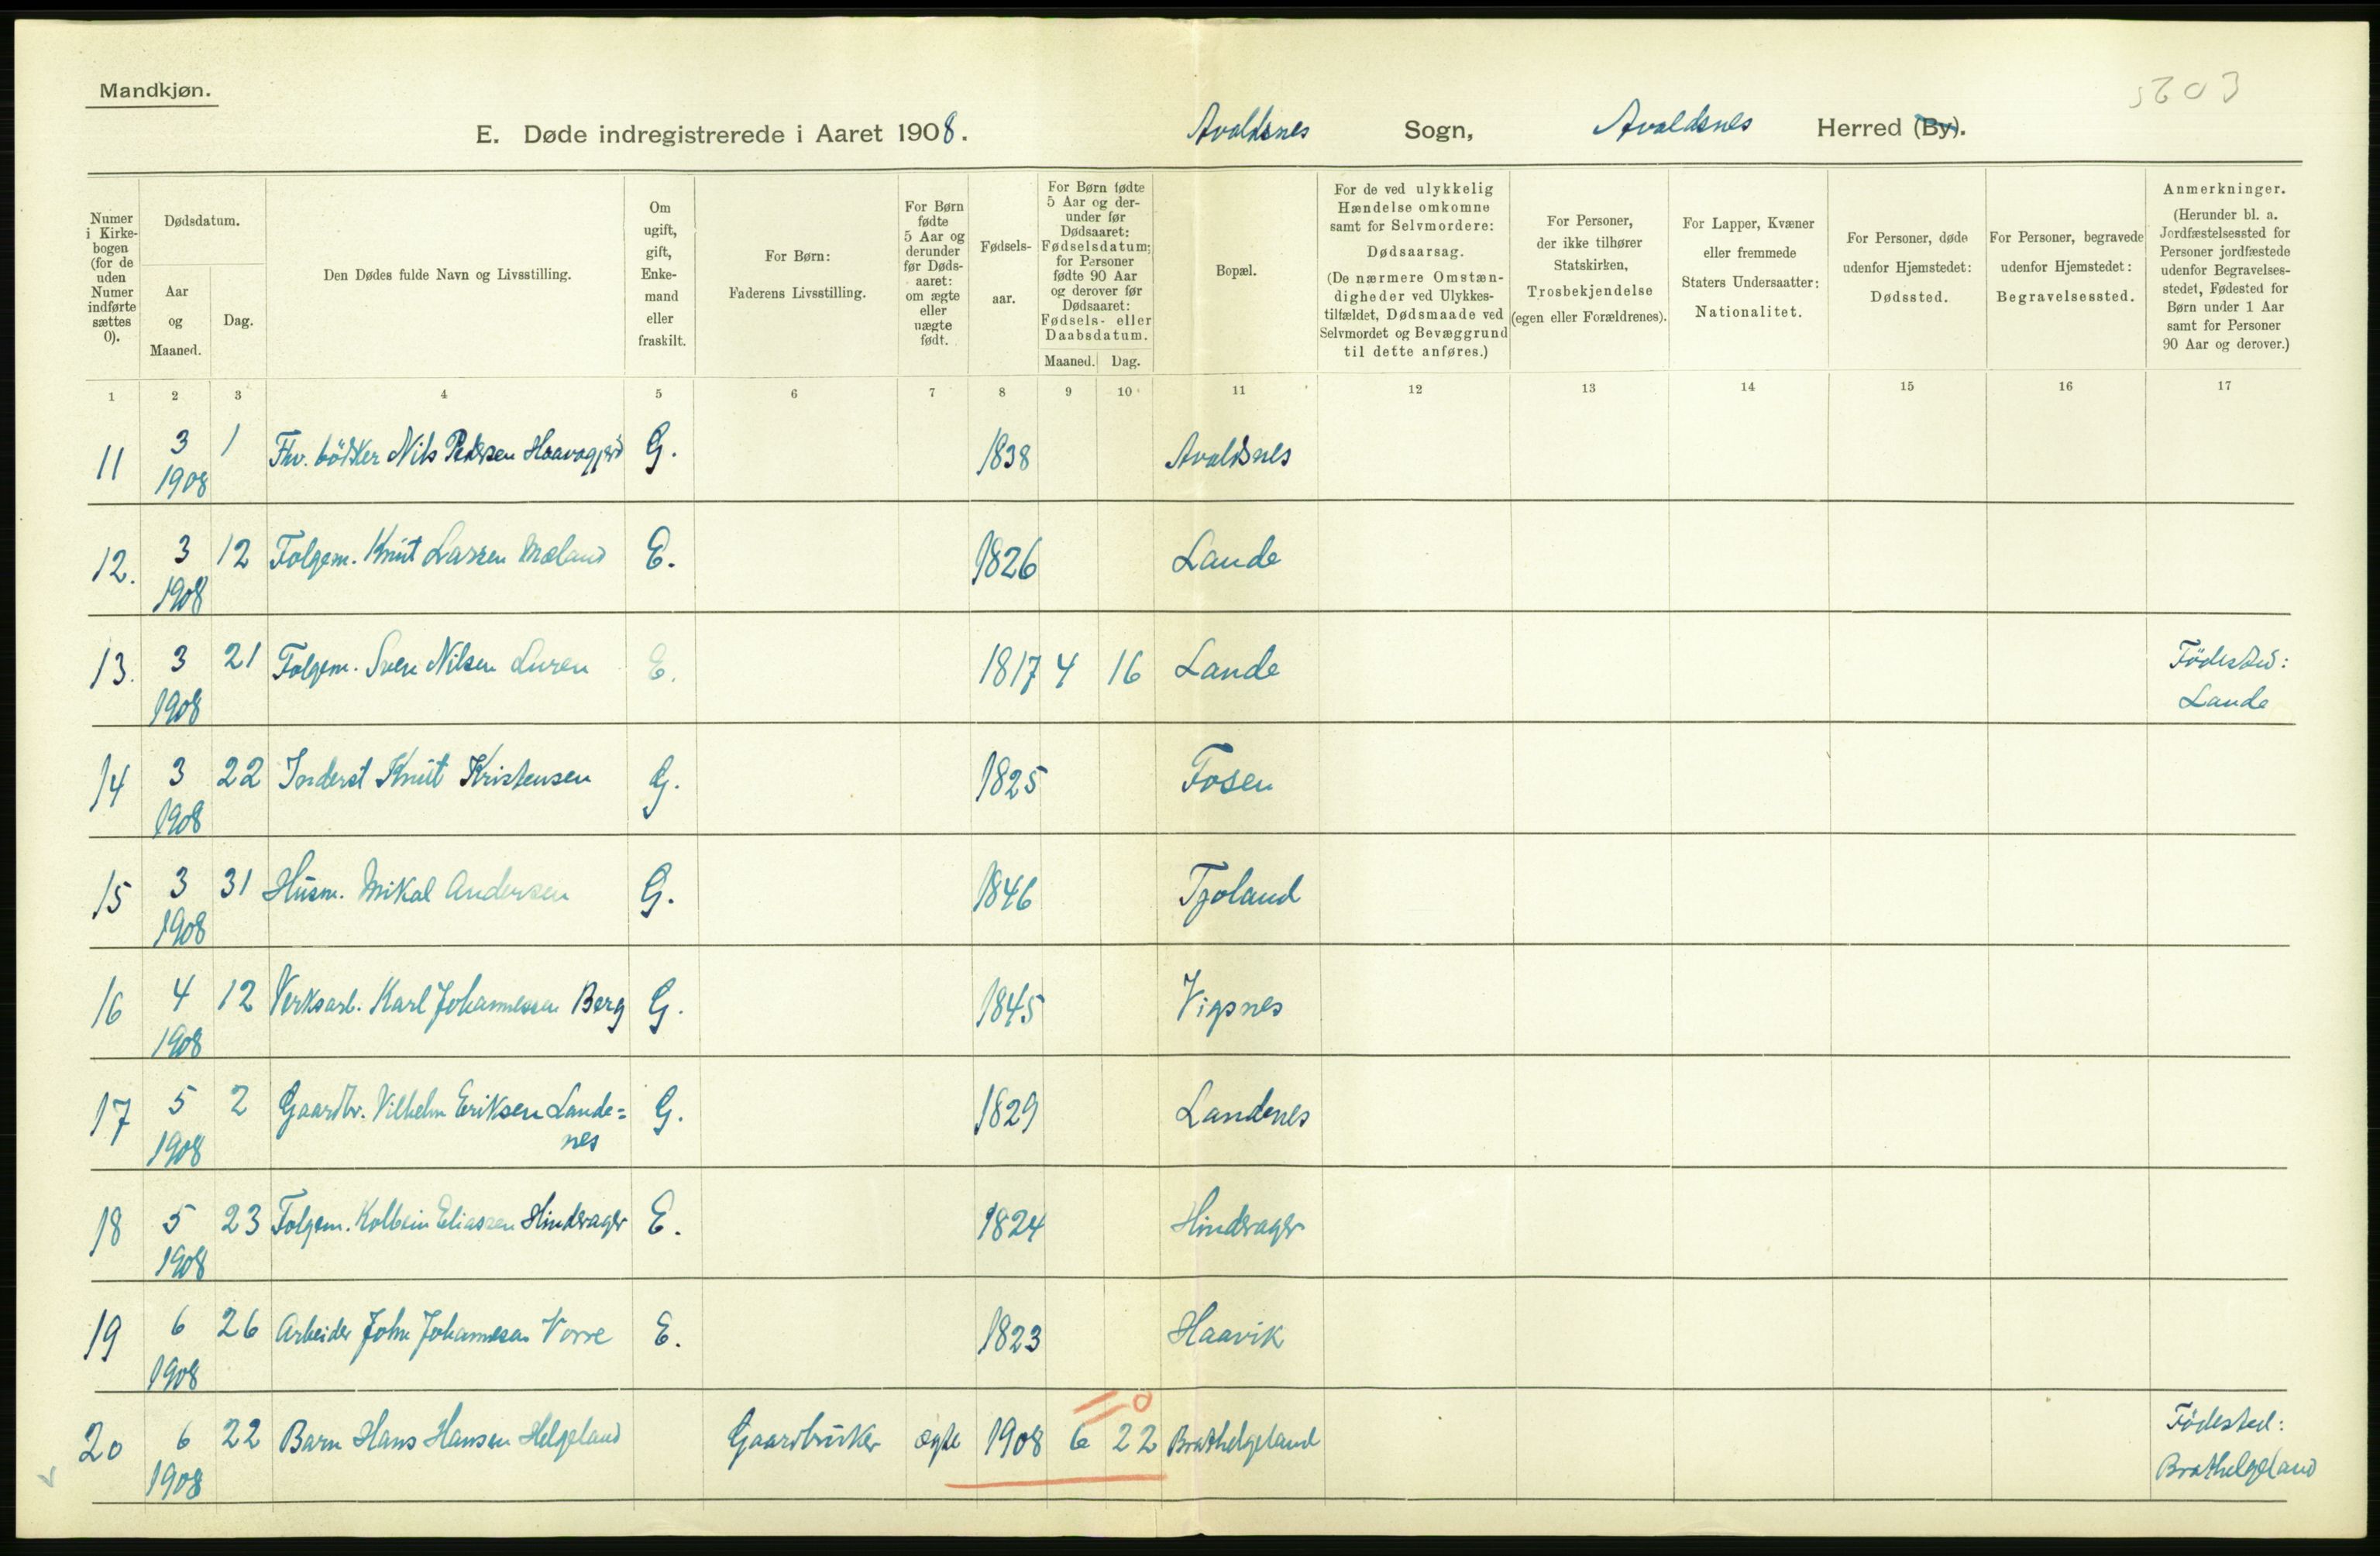 Mandkjøn.
E. Døde indregistrerede i Aaret 1908. Avaldsnes Sogn, Avaldsnes Herred (By).
Numer i Kirkebogen (for de uden Numer indførte sættes 0).
Dødsdatum.
Aar og Maaned.
Dag.
Den Dødes fulde Navn og Livsstilling.
Om ugift, gift, Enkemand eller fraskilt.
For Børn: Faderens Livsstilling.
For Børn fødte 5 Aar og derunder før Dødsaaret: om ægte eller uægte født.
Fødselsaar.
For Børn fødte 5 Aar og derunder før Dødsaaret: Fødselsdatum; for Personer fødte 90 Aar og derover før Dødsaaret: Fødsels- eller Daabsdatum.
Maaned. Dag.
Bopæl.
For de ved ulykkelig Hændelse omkomne samt for Selvmordere: Dødsaarsag. (De nærmere Omstændigheder ved Ulykkestilfældet, Dødsmaade ved Selvmordet og Bevæggrund til dette anføres.)
For Personer, der ikke tilhører Statskirken, Trosbekjendelse (egen eller Forældrenes).
For Lapper, Kvæner eller fremmede Staters Undersaatter: Nationalitet.
For Personer, døde udenfor Hjemstedet: Dødssted.
For Personer, begravede udenfor Hjemstedet: Begravelsessted.
Anmerkninger. (Herunder bl. a. Jordfæstelsessted for Personer jordfæstede udenfor Begravelsesstedet, Fødested for Børn under 1 Aar samt for Personer 90 Aar og derover.)
1 2 3 4 5 6 7 8 9 10 11 12 13 14 15 16 17
11 3 1908 1 Fhv. bödker Nils Pedersen G. 1838 Avaldsnes
12. 3 1908 12 Folgem. Knut Larsen Mæland E. 1826 Lande
13. 3 1908 21 Folgem. Sven Nilsen Luren E. 1817 4 16 Lande Födested: Lande
14 3 1908 22 Inderst Knut Kristensen G. 1825 Fosen
15 3 1908 31 Husm. Mikal Andersen G. 1846 Tjoland
16 4 1908 12 Verksarb. Karl Johannessen Berg G. 1845 Vigsnes
17 5 1908 2 Gaardbr. Vilhelm Eriksen Lande=
nes G. 1829 Landenes
18 5 1908 23 Folgem. Kolbein Eliassen Hinderager E. 1824 Hinderager
19 6 1908 26 Arbeider John Johannesen Vorre E. 1823 Haavik
20 6 1908 22 Barn Hans Hansen Helgeland Gaardbruker ægte 1908 6 22 Brathelgeland Födested: Brathelgeland